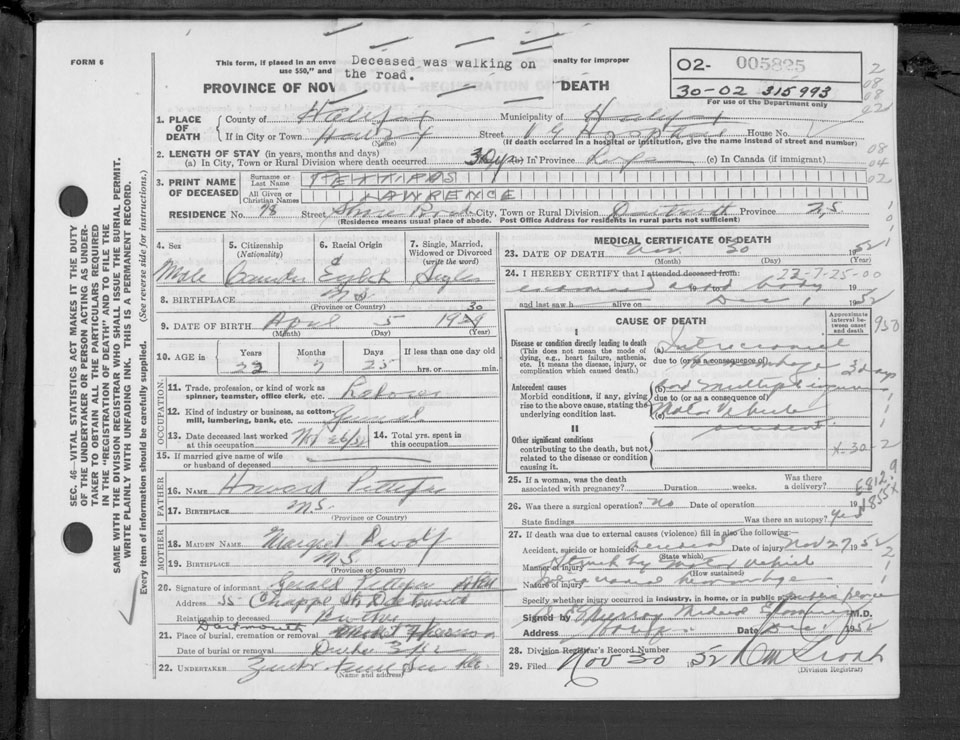 FORM 6
This form, if placed in an enve
Deceased was walking on
the road.
enalty for improper
use $50," and
PROVINCE OF NOV
DEATH
02- 005825
30-02 315993
For use of the Department only
1. PLACE OF DEATH
County of Halifax Municipality of
If in City or Town Halifax Street V G Hospital House No.
(Name) (If death occurred in a hospital or institution, give the name instead of street and number)
2. LENGTH OF STAY (in years, months and days)
(a) In City, Town or Rural Division where death occurred 3 Dys In Province Life (c) In Canada (if immigrant)
3. PRINT NAME OF DECEASED
Surname or Last Name
All Given or Christian Names LAWRENCE
RESIDENCE No. 98 Street Shore Road City, Town or Rural Division Dartmouth Province N.S.
(Residence means usual place of abode. Post Office Address for residents in rural parts not sufficient)
4. Sex
Male
5. Citizenship (Nationality)
Canadian
6. Racial Origin
English
7. Single, Married, Widowed or Divorced (write the word)
Single
8. BIRTHPLACE N.S.
(Province or Country)
9. DATE OF BIRTH April 5 19 30
(Month) (Day) (Year)
10. AGE in
Years Months Days If less than one day old
22 7 25 hrs. or min.
OCCUPATION
11. Trade, profession, or kind of work as spinner, teamster, office clerk, etc. Laborer
12. Kind of industry or business, as cotton-mill, lumbering, bank, etc. General
13. Date deceased last worked at this occupation
14. Total yrs. spent in this occupation
15. If married give name of wife or husband of deceased
FATHER
16. NAME Howard Pettipas
17. BIRTHPLACE N.S.
(Province or Country)
MOTHER
18. MAIDEN NAME Margaret
19. BIRTHPLACE N.S.
(Province or Country)
20. Signature of informant Gerald Pettipas
Address 55 Chappel St Dartmouth
Relationship to deceased Brother
Dartmouth
21. Place of burial, cremation or removal
Date of burial or removal
22. UNDERTAKER
(Name and address)
MEDICAL CERTIFICATE OF DEATH
23. DATE OF DEATH Nov. 30 1952
(Month) (Day) (Year)
24. I HEREBY CERTIFY that I attended deceased from: 22-7-25-00
examined body 19
and last saw h alive on Dec 1 1952
CAUSE OF DEATH
Approximate interval between onset and death
I
Disease or condition directly leading to death
(This does not mean the mode of dying, e.g., heart failure, asthenia, etc. It means the disease, injury, or complication which caused death.)
(a) Intracranial
hemorhage 3 days
due to (or as a consequence of)
Antecedent causes
Morbid conditions, if any, giving rise to the above cause, stating the underlying condition last.
(b) and multiple injuries
due to (or as a consequence of)
(c) Motor Vehicle
accident
II
Other significant conditions
contributing to the death, but not related to the disease or condition causing it.
X-30 2
25. If a woman, was the death associated with pregnancy? Duration weeks. Was there a delivery?
E812.9
26. Was there a surgical operation? No Date of operation 19
N855X
State findings Was there an autopsy? Yes
27. If death was due to external causes (violence) fill in also the following:—
Accident, suicide or homicide? Accident Date of injury Nov 27 1952
(State which)
Manner of injury Struck by Motor Vehicle
(How sustained)
Nature of injury Intracranial hemorrhage
Specify whether injury occurred in industry, in home, or in public place public place
Signed by Medical Examiner M.D.
Address Halifax Date Dec 1 1952
28. Division Registrar's Record Number
29. Filed Nov 30 52
(Division Registrar)
SEC. 46—VITAL STATISTICS ACT MAKES IT THE DUTY
OF THE UNDERTAKER OR PERSON ACTING AS UNDER-
TAKER TO OBTAIN ALL THE PARTICULARS REQUIRED
IN THE "REGISTRATION OF DEATH" AND TO FILE THE
SAME WITH THE DIVISION REGISTRAR WHO SHALL ISSUE THE BURIAL PERMIT.
WRITE PLAINLY WITH UNFADING INK. THIS IS A PERMANENT RECORD.
Every item of information should be carefully supplied. (See reverse side for instructions.)